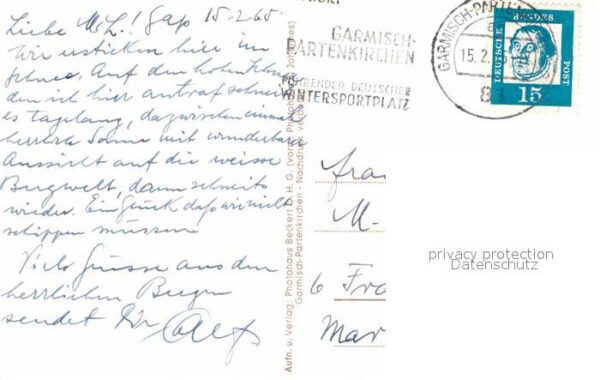 Liebe M.L.! Gap 15-2-65.
Wir ersticken hier im
Schnee. Auf den hohen Schnee
den ich hier antraf schneit
es tagelang, dazwischen einmal
herrliche Sonne mit wunderbarer
Aussicht auf die weisse
Bergwelt, dann schneits
wieder. Ein Glück dass wir nicht
schippen müssen
Viele Grüsse aus den
herrlichen Bergen
sendet Dir
GARMISCH-
PARTENKIRCHEN
FÜHRENDER DEUTSCHER
WINTERSPORTPLATZ
GARMISCH-PARTEN
15.2.
DEUTSCHE BUNDESPOST
15
Aufn. u. Verlag: Photohaus Beckert O.H.G. (vorm. Photohaus Johannes)
Garmisch-Partenkirchen - Nachdruck verboten
Frau
M.
6 Fra
Mar
privacy protection
Datenschutz